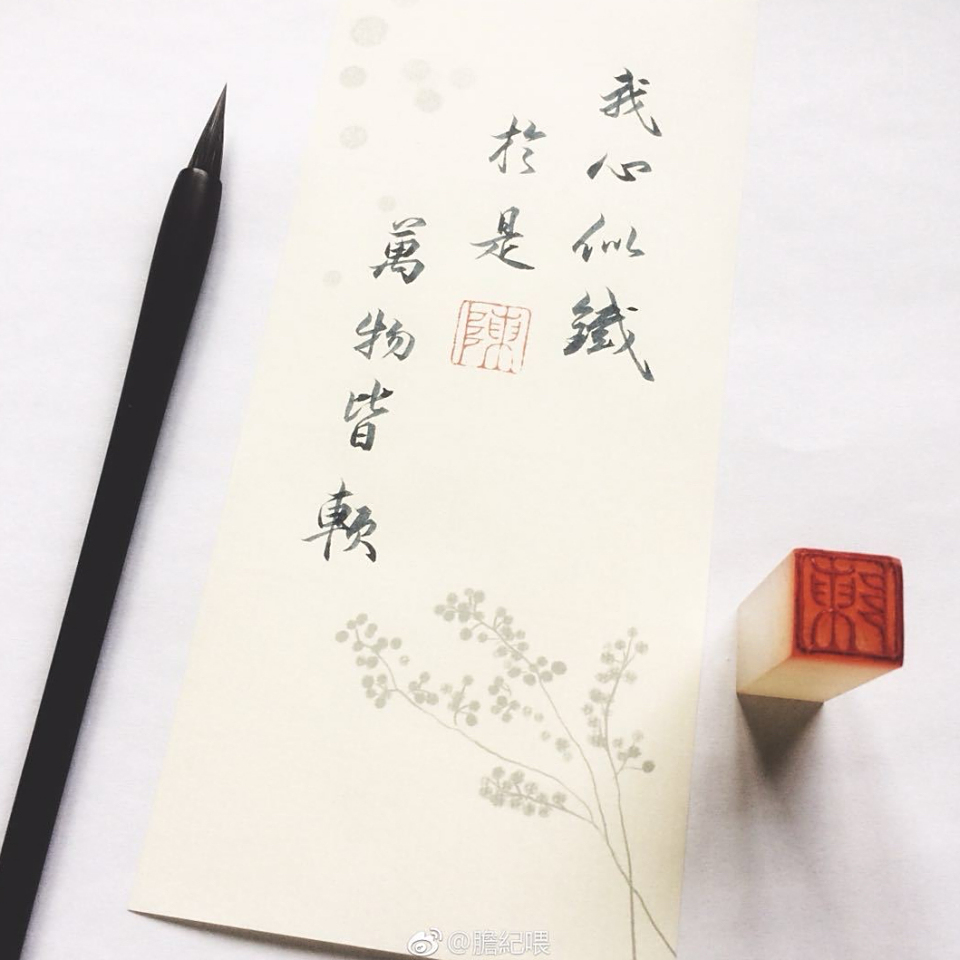 我心似鐵
於是
陳
萬物皆軟
@膽紀喂